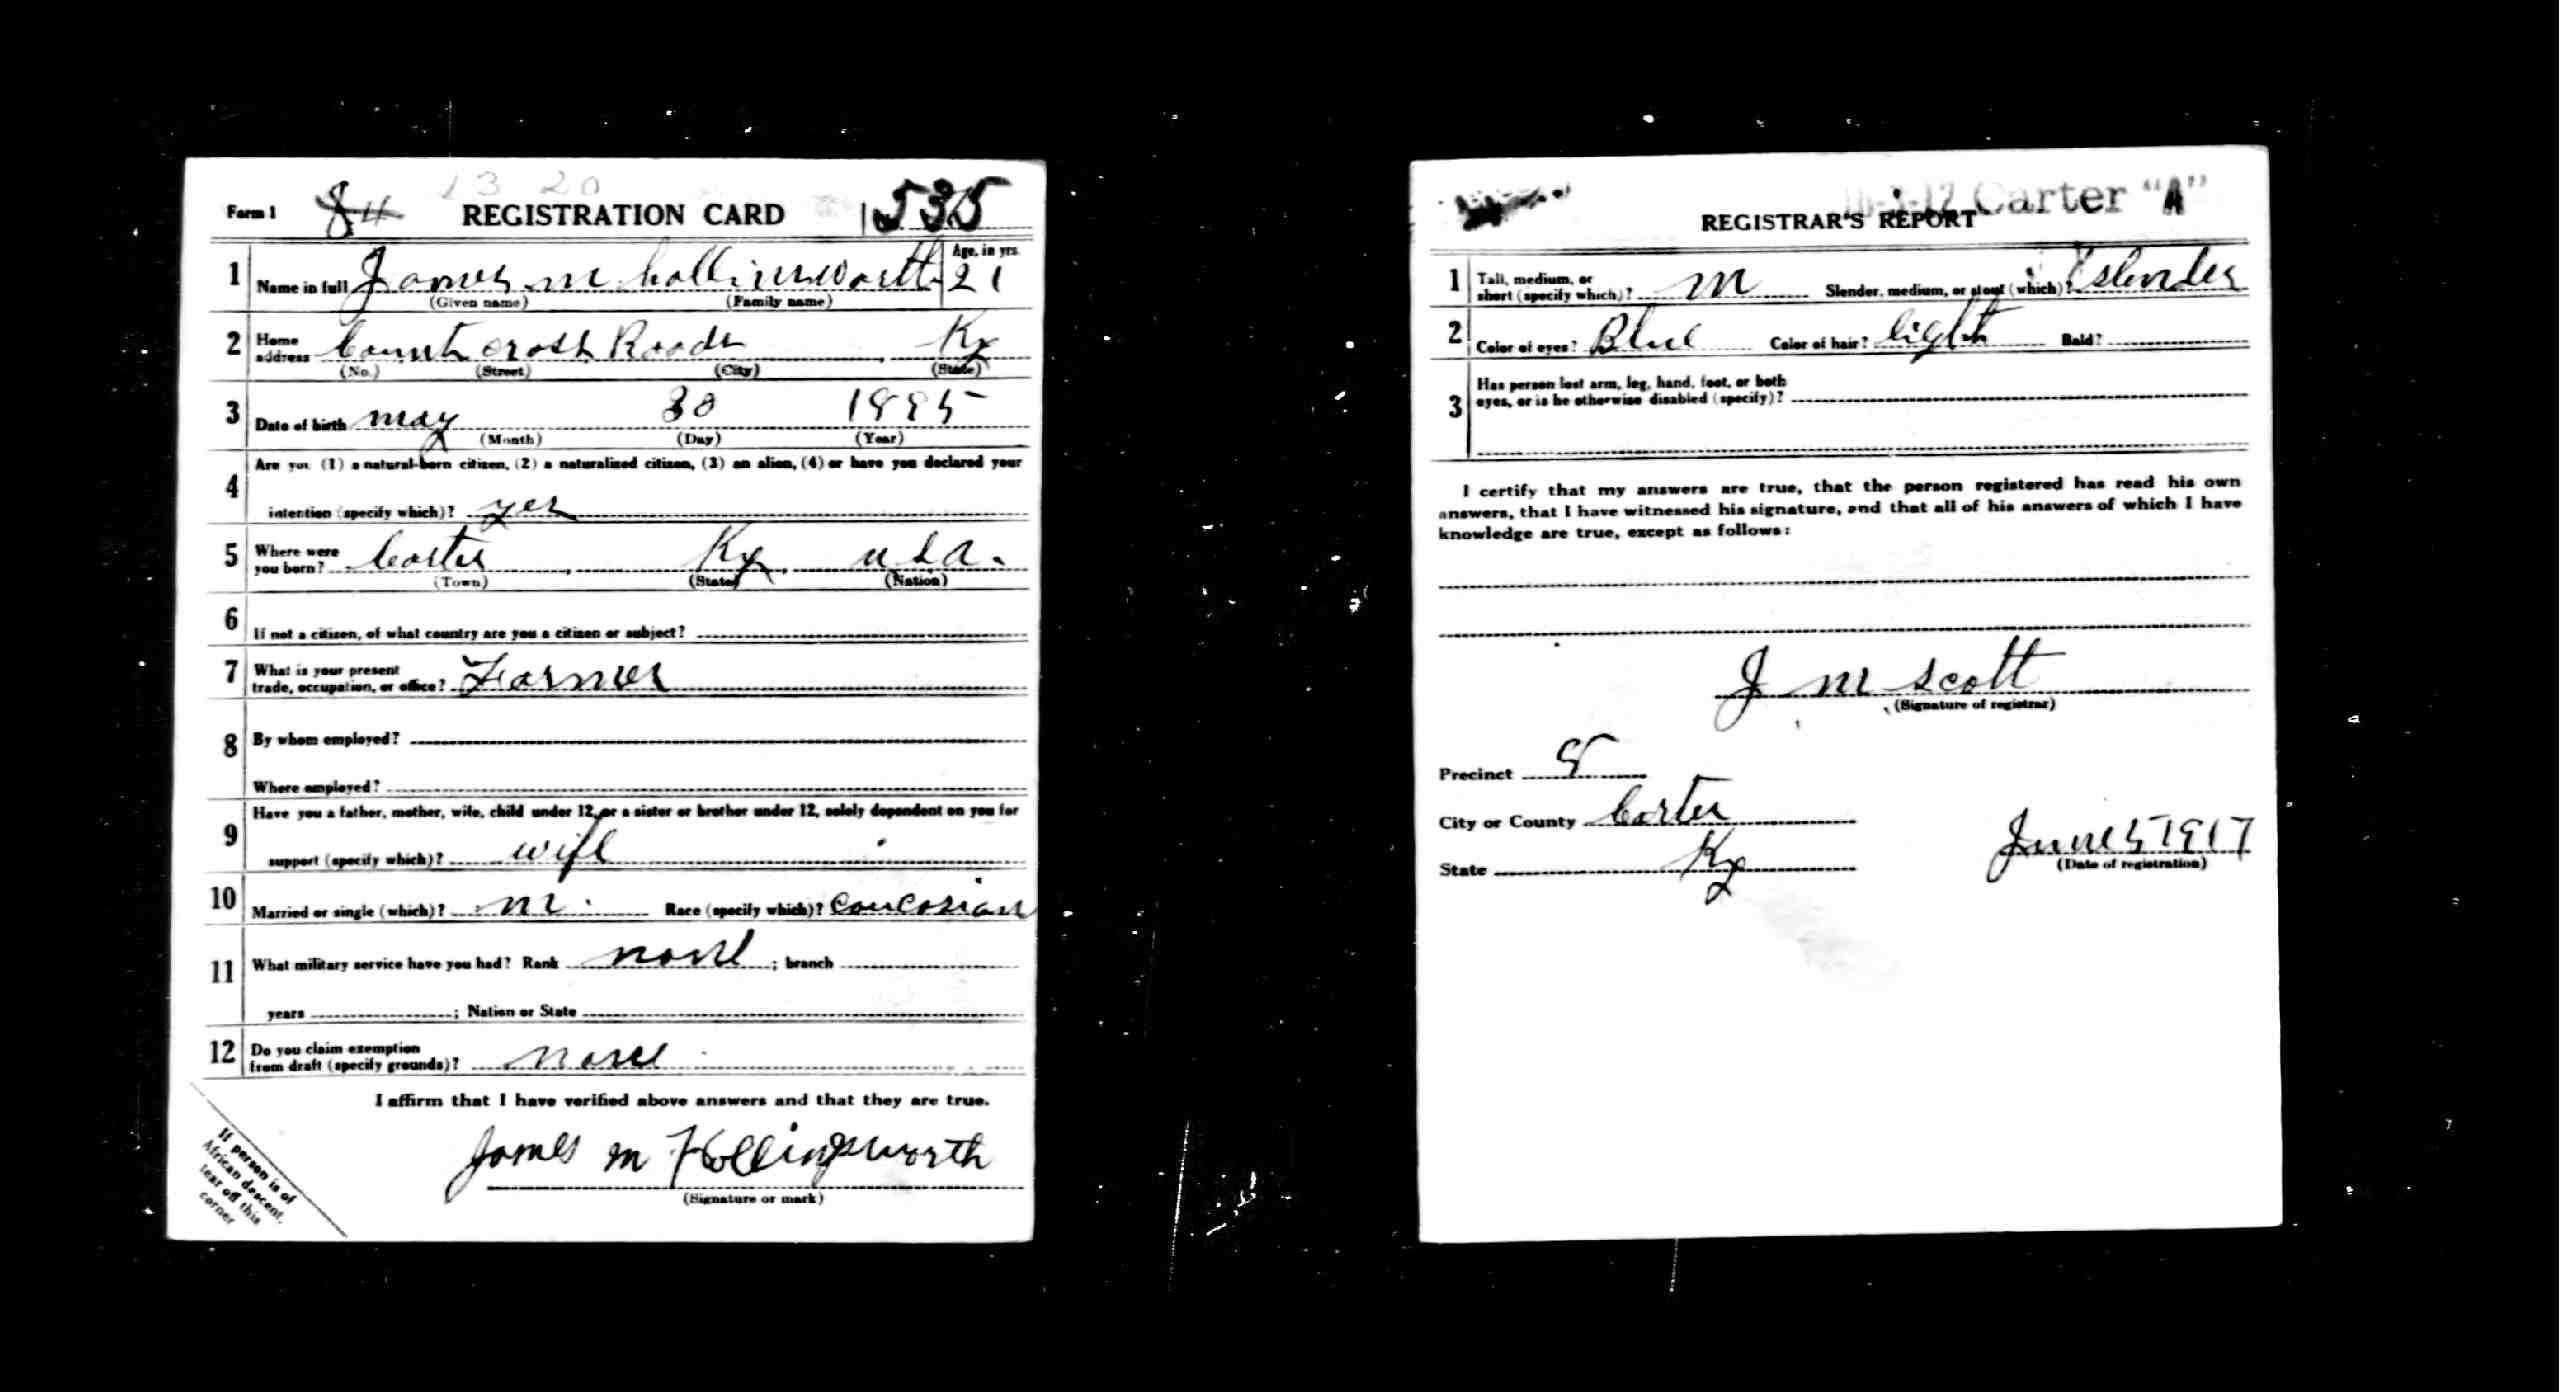 13 20
Form 1 REGISTRATION CARD 535
1 Name in full James m hollinsworth Age, in yrs. 21
(Given name) (Family name)
2 Home address Count cross Roads Ky
(No.) (Street) (City) (State)
3 Date of birth may 30 1895
(Month) (Day) (Year)
4 Are you (1) a natural-born citizen, (2) a naturalized citizen, (3) an alien, (4) or have you declared your
intention (specify which)? yes
5 Where were you born? Carter Ky usa.
(Town) (State) (Nation)
6 If not a citizen, of what country are you a citizen or subject?
7 What is your present trade, occupation, or office? Farmer
8 By whom employed?
Where employed?
9 Have you a father, mother, wife, child under 12, or a sister or brother under 12, solely dependent on you for
support (specify which)? wife
10 Married or single (which)? m. Race (specify which)? Caucasian
11 What military service have you had? Rank none ; branch
years ; Nation or State
12 Do you claim exemption from draft (specify grounds)? none
I affirm that I have verified above answers and that they are true.
James m Hollingsworth
(Signature or mark)
If person is of
African descent,
tear off this
corner
Carter "A"
REGISTRAR'S REPORT
1 Tall, medium, or short (specify which)? m Slender, medium, or stout (which)? slender
2 Color of eyes? Blue Color of hair? light Bald?
3 Has person lost arm, leg, hand, foot, or both
eyes, or is he otherwise disabled (specify)?
I certify that my answers are true, that the person registered has read his own
answers, that I have witnessed his signature, and that all of his answers of which I have
knowledge are true, except as follows:
J m Scott
(Signature of registrar)
Precinct 8
City or County Carter
State Ky
June 5 1917
(Date of registration)